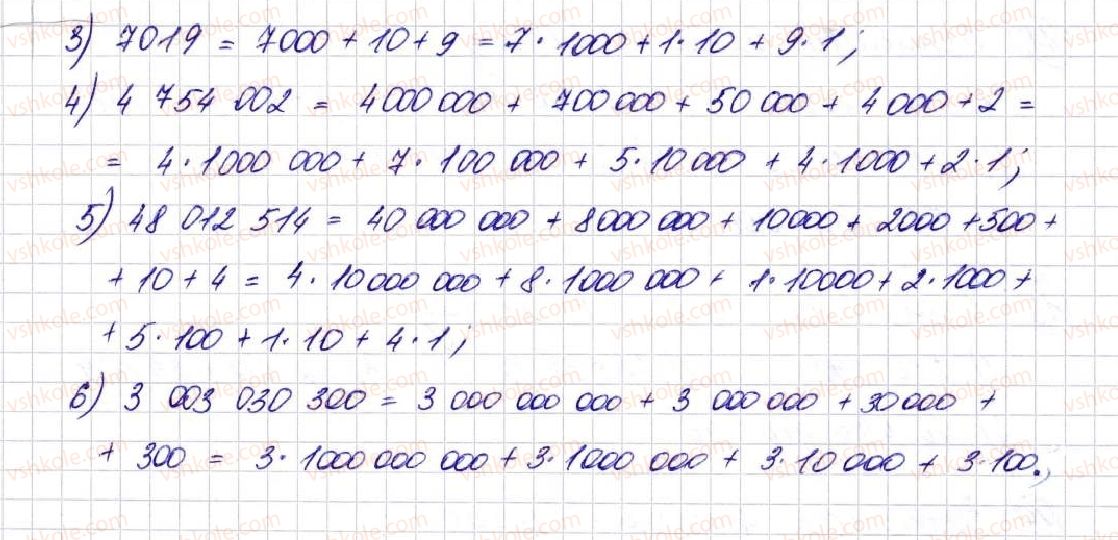 3) 7019 = 7000 + 10 + 9 = 7 · 1000 + 1 · 10 + 9 · 1;
4) 4 754 002 = 4 000 000 + 700 000 + 50 000 + 4 000 + 2 =
= 4 · 1000 000 + 7 · 100 000 + 5 · 10 000 + 4 · 1000 + 2 · 1;
5) 48 012 514 = 40 000 000 + 8000 000 + 10000 + 2000 + 500 +
+ 10 + 4 = 4 · 10 000 000 + 8 · 1000 000 + 1 · 10000 + 2 · 1000 +
+ 5 · 100 + 1 · 10 + 4 · 1;
6) 3 003 030 300 = 3 000 000 000 + 3 000 000 + 30 000 +
+ 300 = 3 · 1000 000 000 + 3 · 1000 000 + 3 · 10 000 + 3 · 100.